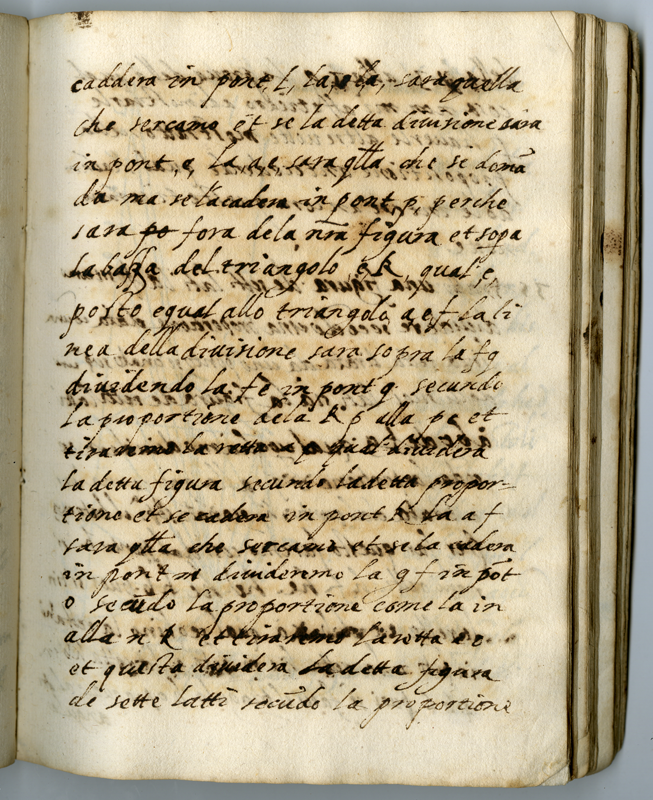 caddera in pont, l, la, e la, sara quella
che sercamo et se la detta divisione sara
in pont, e, la a e sara qlla che se domā
da ma se l'acadera in pont p, perche
sara po fora dela nrã figura et sopa
la bassa del triangolo, e k, qual e,
posto egual allo triangolo a e f la li
nea della divisione sara sopra la f g
dividendo la f e in pont q. secundo
la proportione dela k p alla pe et
tiraremo la retta a q qual dividera
la detta figura secundo la detta propor-
tione et se cadera in pont k la a f
sara qlla che sercamo et se la cadera
in pont m divideremo la g f in pōt
o secūdo la proportione come la in
alla n k et tiraremo la retta a o
et questa dividera la detta figura
de sette latti secūdo la proportione